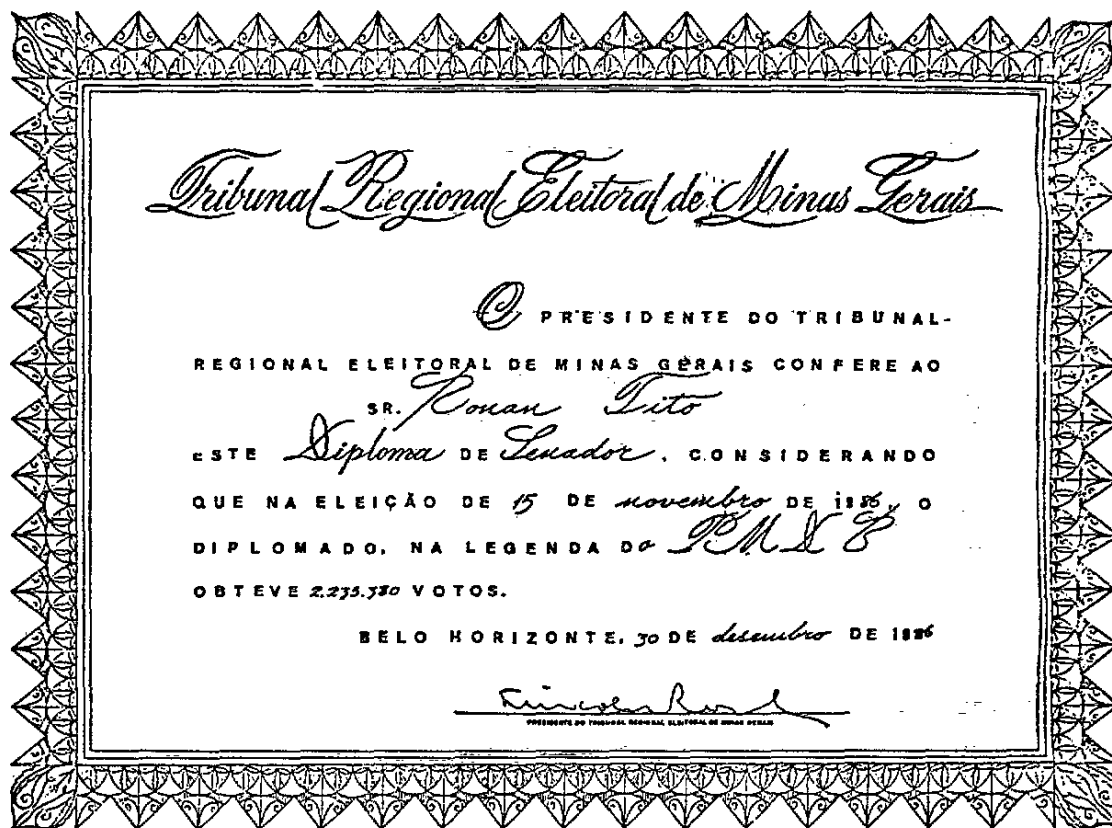 Tribunal Regional Eleitoral de Minas Gerais
O PRESIDENTE DO TRIBUNAL-
REGIONAL ELEITORAL DE MINAS GERAIS CONFERE AO
SR. Ronan Tito
ESTE Diploma DE Senador, CONSIDERANDO
QUE NA ELEIÇÃO DE 15 DE novembro DE 1986, O
DIPLOMADO, NA LEGENDA DO PMDB
OBTEVE VOTOS.
BELO HORIZONTE, 30 DE dezembro DE 1986
PRESIDENTE DO TRIBUNAL REGIONAL ELEITORAL DE MINAS GERAIS